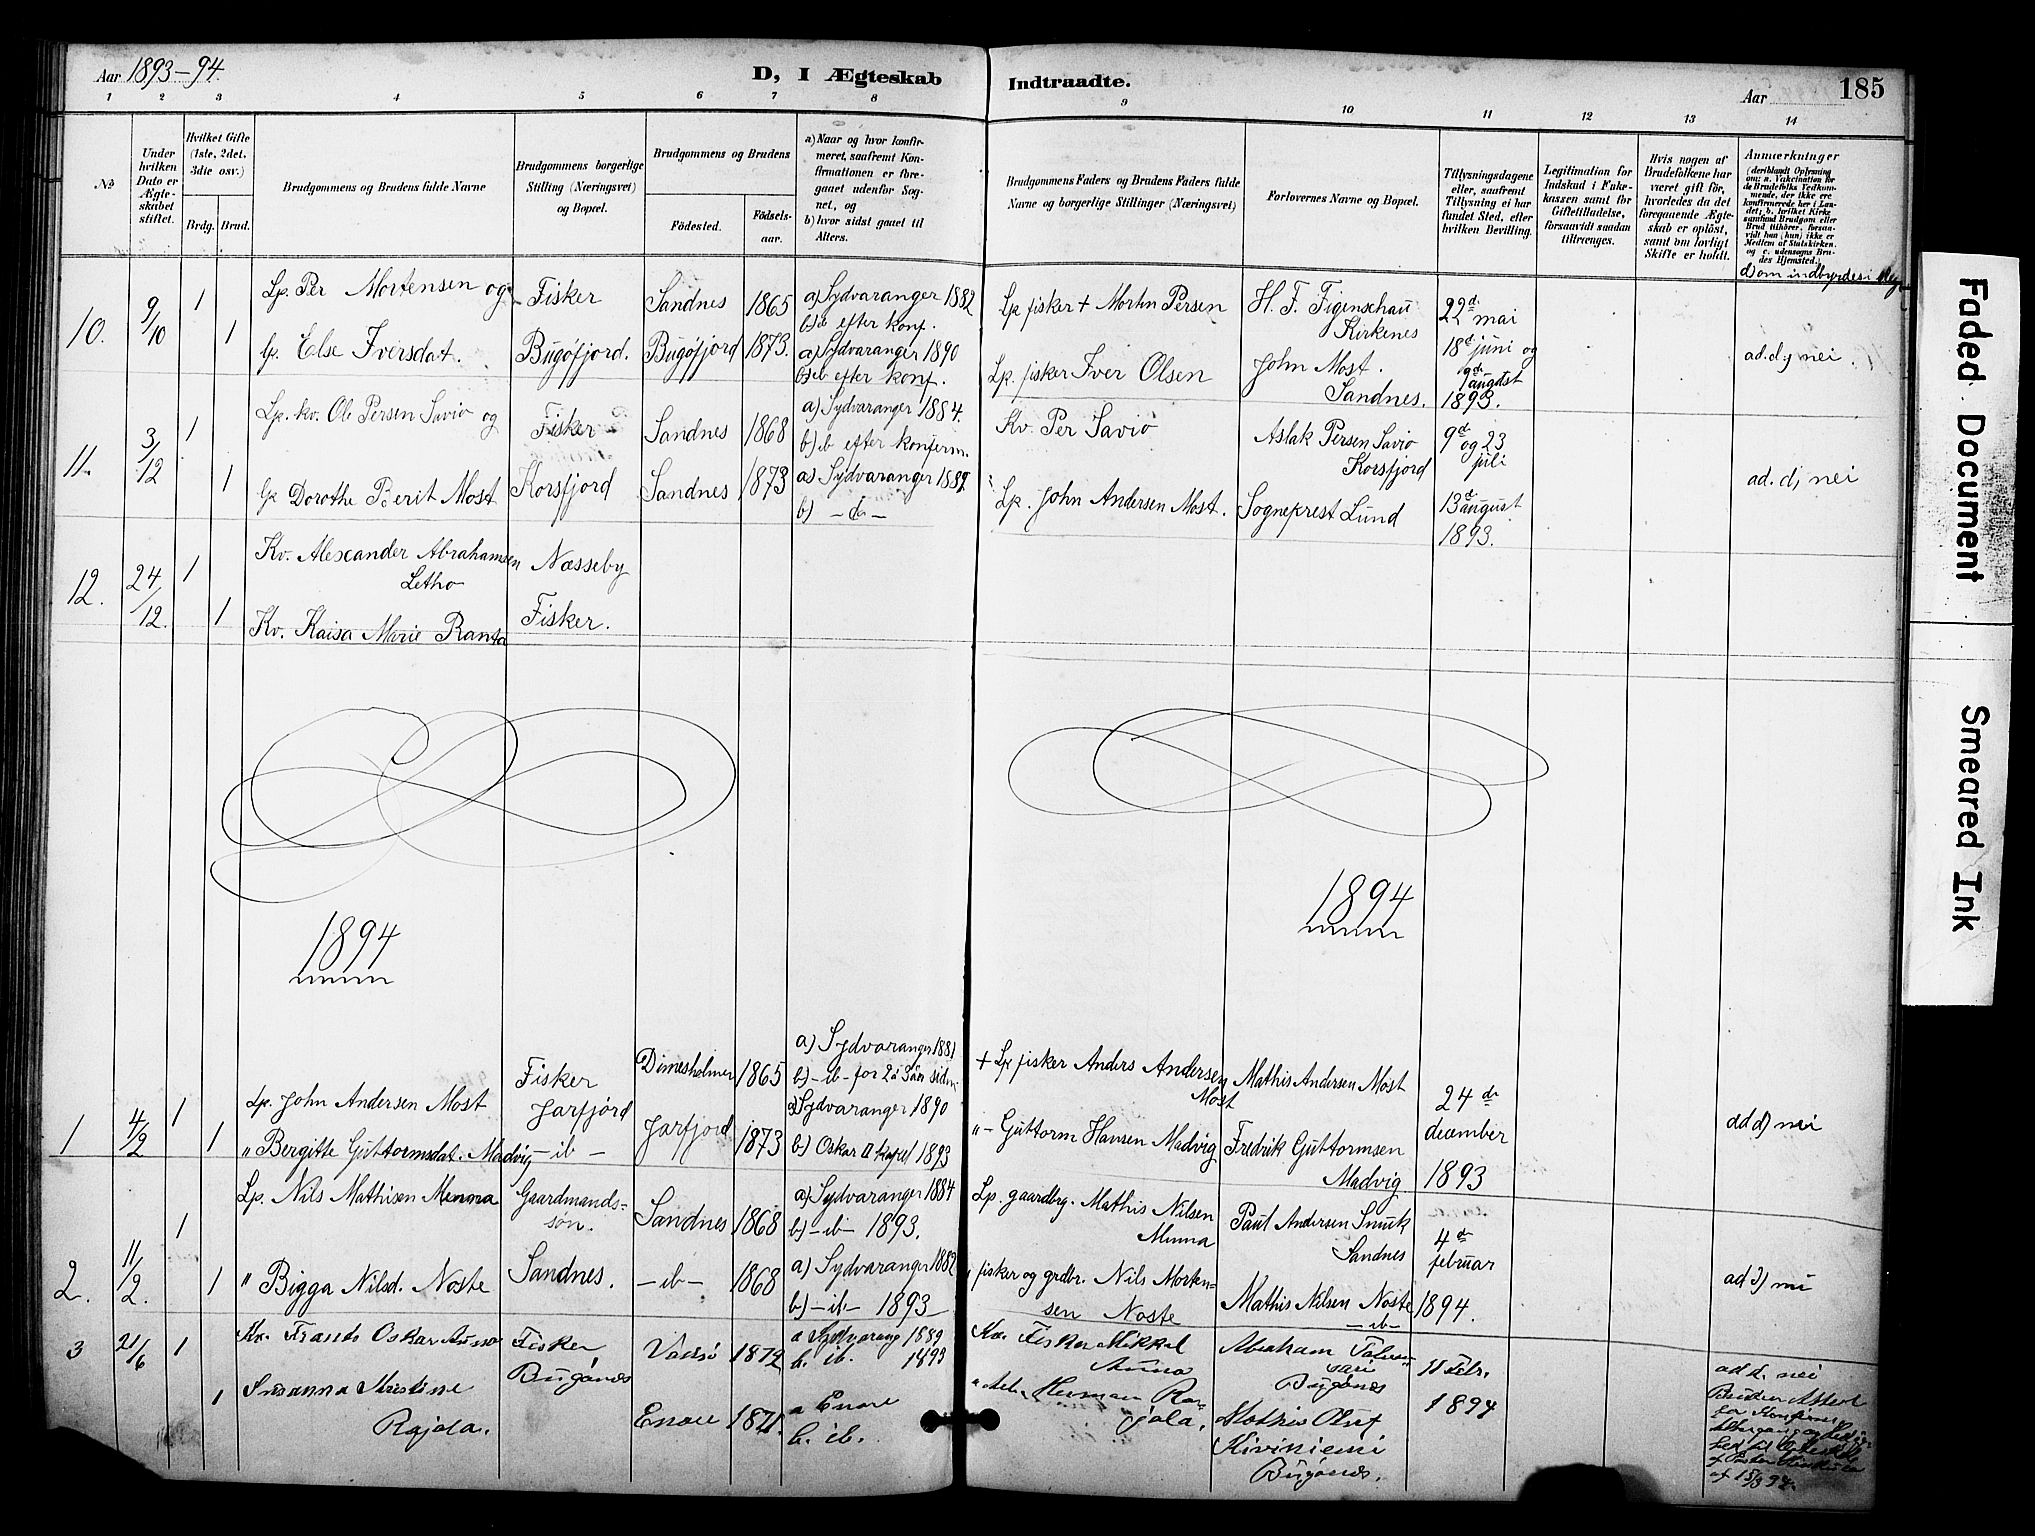 Aar 1893-94.
D, I Ægteskab
Indtraadte.
Aar
185
1 2 3 4 5 6 7 8 9 10 11 12 13 14
No
Under hvilken Dato er Ægteskabet stiftet.
Hvilket Gifte (1ste, 2det, 3die osv.)
Brdg. Brud.
Brudgommens og Brudens fulde Navne
Brudgommens borgerlige Stilling (Næringsvei) og Bopæl.
Brudgommens og Brudens
Fødested.
Fødselsaar.
a) Naar og hvor konfirmeret, saafremt Konfirmationen er foregaaet udenfor Sognet, og
b) hvor sidst gaaet til Alters.
Brudgommens Faders og Brudens Faders fulde Navne og borgerlige Stillinger (Næringsvei)
Forlovernes Navne og Bopæl.
Tillysningsdagene eller, saafremt Tillysning ei har fundet Sted, efter hvilken Bevilling.
Legitimation for Indskud i Enkekassen samt for Giftetilladelse, forsaavidt saadan tiltrænges.
Hvis nogen af Brudefolkene har været gift før, hvorledes da det foregaaende Ægteskab er opløst, samt om lovligt Skifte er holdt.
Anmærkninger
(deriblandt Oplysning om: a. Vakcination for de Brudefolks Vedkommende, der ikke ere konfirmerede her i Landet; b. hvilket Kirkesamfund Brudgom eller Brud tilhører, forsaavidt han (hun) ikke er Medlem af Statskirken, og c. udensogns Brudes Hjemsted.)
d) om indbyrdes i slegt
10. 9/10 1 Lp. Per Mortensen og Fisker Sandnes 1865 a) Sydvaranger 1882
b) ib efter konf.
Lp fisker + Morten Persen H. F. Figenschau Kirkenes 22d mai
1 Lp. Else Iversdat. Bugöfjord. Bugöfjord 1873. a) Sydvaranger 1890
b) ib efter konf.
Lp. fisker Iver Olsen John Most. Sandnes. 18d juni og 9d august 1893. ad. d, nei
11. 3/12 1 Lp. kv. Ole Persen Savio og Fisker Sandnes 1868 a) Sydvaranger 1884.
b) ib efter konferm.
Kv. Per Savio Aslak Persen Savio Korsfjord 9d og 23 juli
1 Lp Dorothe Berit Most Korsfjord Sandnes 1873 a) Sydvaranger 1889.
b) - do -
Lp. John Andersen Most. Sogneprest Lund 13d august 1893. ad. d, nei
12. 24/12. 1 Kv. Alexander Abrahamsen Letho Næsseby
1 Kv. Kaisa Marie Ranta Fisker.
1894
1894
1 4/2 1 Lp. John Andersen Most Fisker Jarfjord 1865 a) Sydvaranger 1881
b) - ib - for 2 à 3 år siden
+ Lp fisker Anders Andersen Most Mathis Andersen Most 24 de december 1893
1 " Bergitte Guttormsdat. Madvig - ib - Jarfjord 1873 a) Sydvaranger 1890
b) Oskar II kapel 1893
" - Guttorm Hansen Madvig Fredrik Guttormsen Madvig ad d) nei
2. 11/2. 1 Lp. Nils Mathisen Menna Gaardmandssøn. Sandnes 1868 a) Sydvaranger 1884
b) - ib - 1893.
Lp. gaardbrg. Mathis Nilsen Menna Paul Andersen Snuk Sandnes 4d februar 1894.
1 " Bigga Nilsd. Noste Sandnes. - ib - 1868 a) Sydvaranger 1882
b) - ib - 1893
" fisker og grdbr. Nils Mortensen Noste Mathis Nilsen Noste - ib - ad d) nei
3 21/6 1 Kv. Frants Oskar Fisker Bugönes Vadsö 1872 a Sydvarang 1889
b. ib. 1893
Kv. Fisker Mikkel Abraham Bugönes 11 Febr. 1894
1 Susanna Kristine Rajala. Enare 1871. a Enare
b. ib.
Herman Rajala, Mathis Oluf Kiviniemi Bugönes.
ad d. nei
af 15/3 94.
Faded Document
Smeared Ink